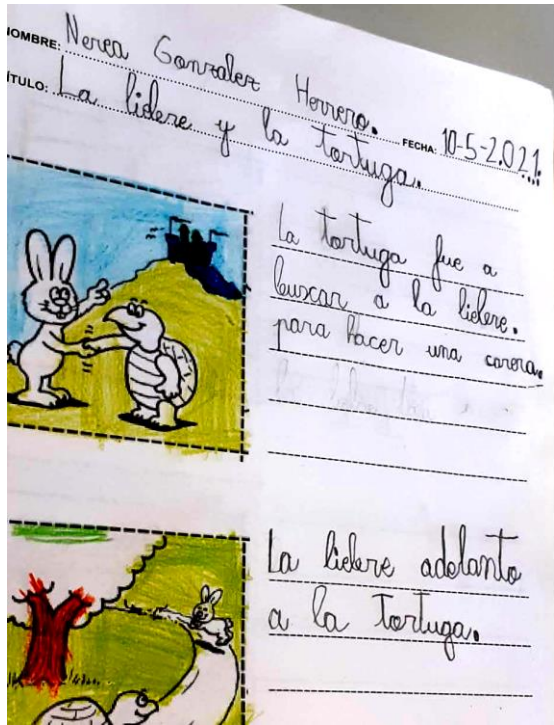 NOMBRE: Nerea Gonzalez Herrero.
FECHA: 10-5-2.021.
TÍTULO: La lidere y la tortuga.
La tortuga fue a
buscar a la lidere.
para hacer una carera.
La lidere adelanto
a la Tortuga.